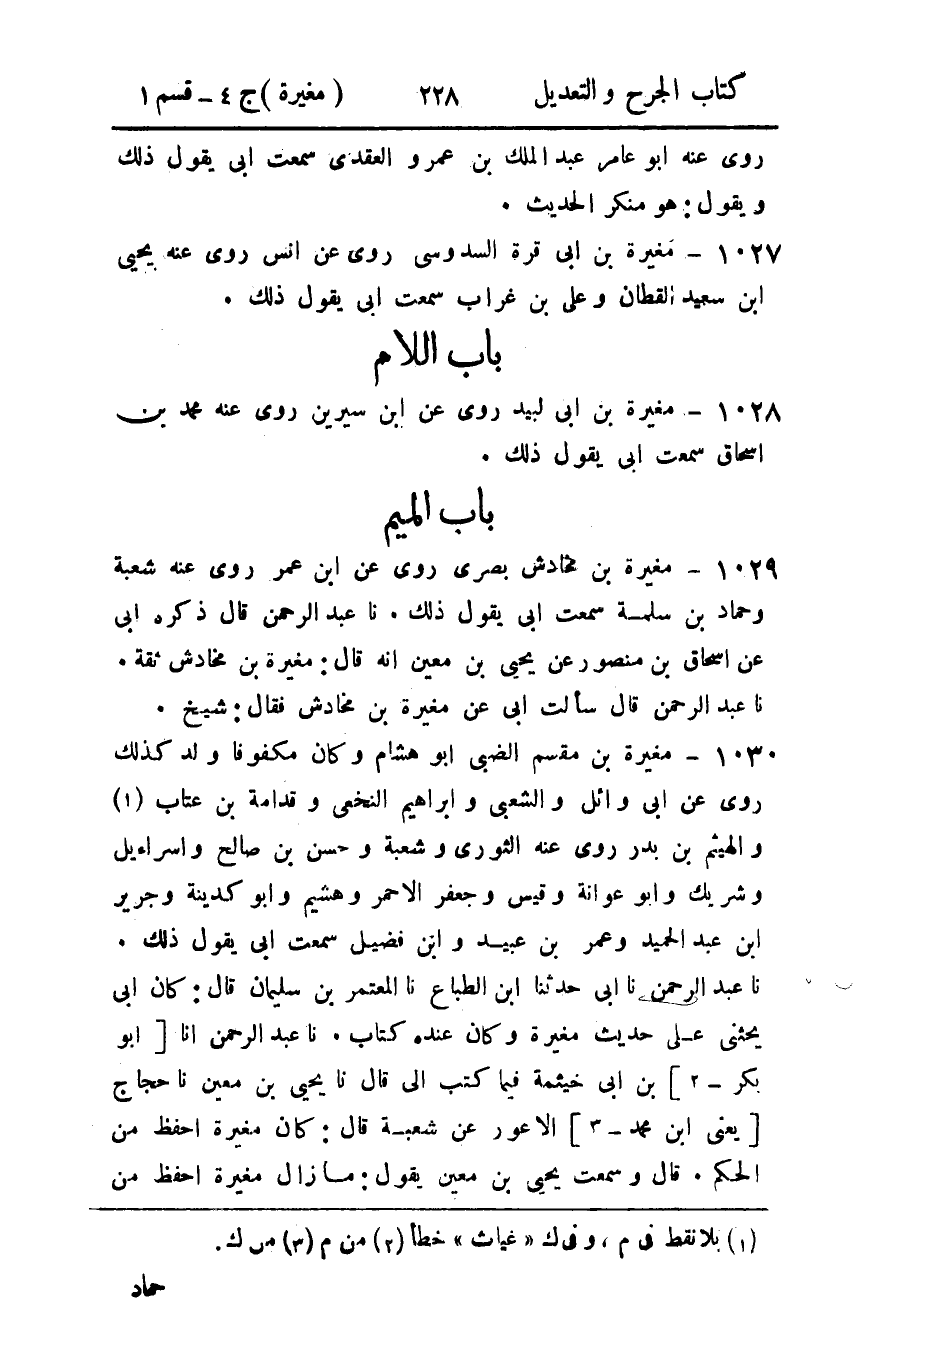 كتاب الجرح والتعديل ٢٢٨ (مغيرة) ج ٤ - قسم ١
روى عنه ابو عامر عبد الملك بن عمرو العقدى سمعت ابى يقول ذلك
ويقول: هو منكر الحديث .
١٠٢٧ - مغيرة بن ابى قرة السدوسى روى عن انس روى عنه يحيى
ابن سعيد القطان وعلى بن غراب سمعت ابى يقول ذلك .
باب اللام
١٠٢٨ - مغيرة بن ابى لبيد روى عن ابن سيرين روى عنه محمد بن
اسحاق سمعت ابى يقول ذلك .
باب الميم
١٠٢٩ - مغيرة بن مخادش بصرى روى عن ابن عمر روى عنه شعبة
وحماد بن سلمة سمعت ابى يقول ذلك . نا عبد الرحمن قال ذكره ابى
عن اسحاق بن منصور عن يحيى بن معين انه قال: مغيرة بن مخادش ثقة .
نا عبد الرحمن قال سألت ابى عن مغيرة بن مخادش فقال: شيخ .
١٠٣٠ - مغيرة بن مقسم الضبى ابو هشام وكان مكفوفا ولد كذلك
روى عن ابى وائل والشعبى وابراهيم النخعى وقدامة بن عتاب (١)
والهيثم بن بدر روى عنه الثورى وشعبة وحسن بن صالح واسراءيل
وشريك وابو عوانة وقيس وجعفر الاحمر وهشيم وابو كدينة وجرير
ابن عبد الحميد وعمر بن عبيد وابن فضيل سمعت ابى يقول ذلك .
نا عبد الرحمن نا ابى حدثنا ابن الطباع نا المعتمر بن سليمان قال: كان ابى
يحثنى على حديث مغيرة وكان عنده كتاب . نا عبد الرحمن انا [ ابو
بكر - ٢ ] بن ابى خيثمة فيما كتب الى قال نا يحيى بن معين نا حجاج
[ يعنى ابن محمد - ٣ ] الاعور عن شعبة قال: كان مغيرة احفظ من
الحكم . قال وسمعت يحيى بن معين يقول: ما زال مغيرة احفظ من
(١) بلا نقط فى م ، وفى ك « غياث » خطأ (٢) من م (٣) من ك.
حماد